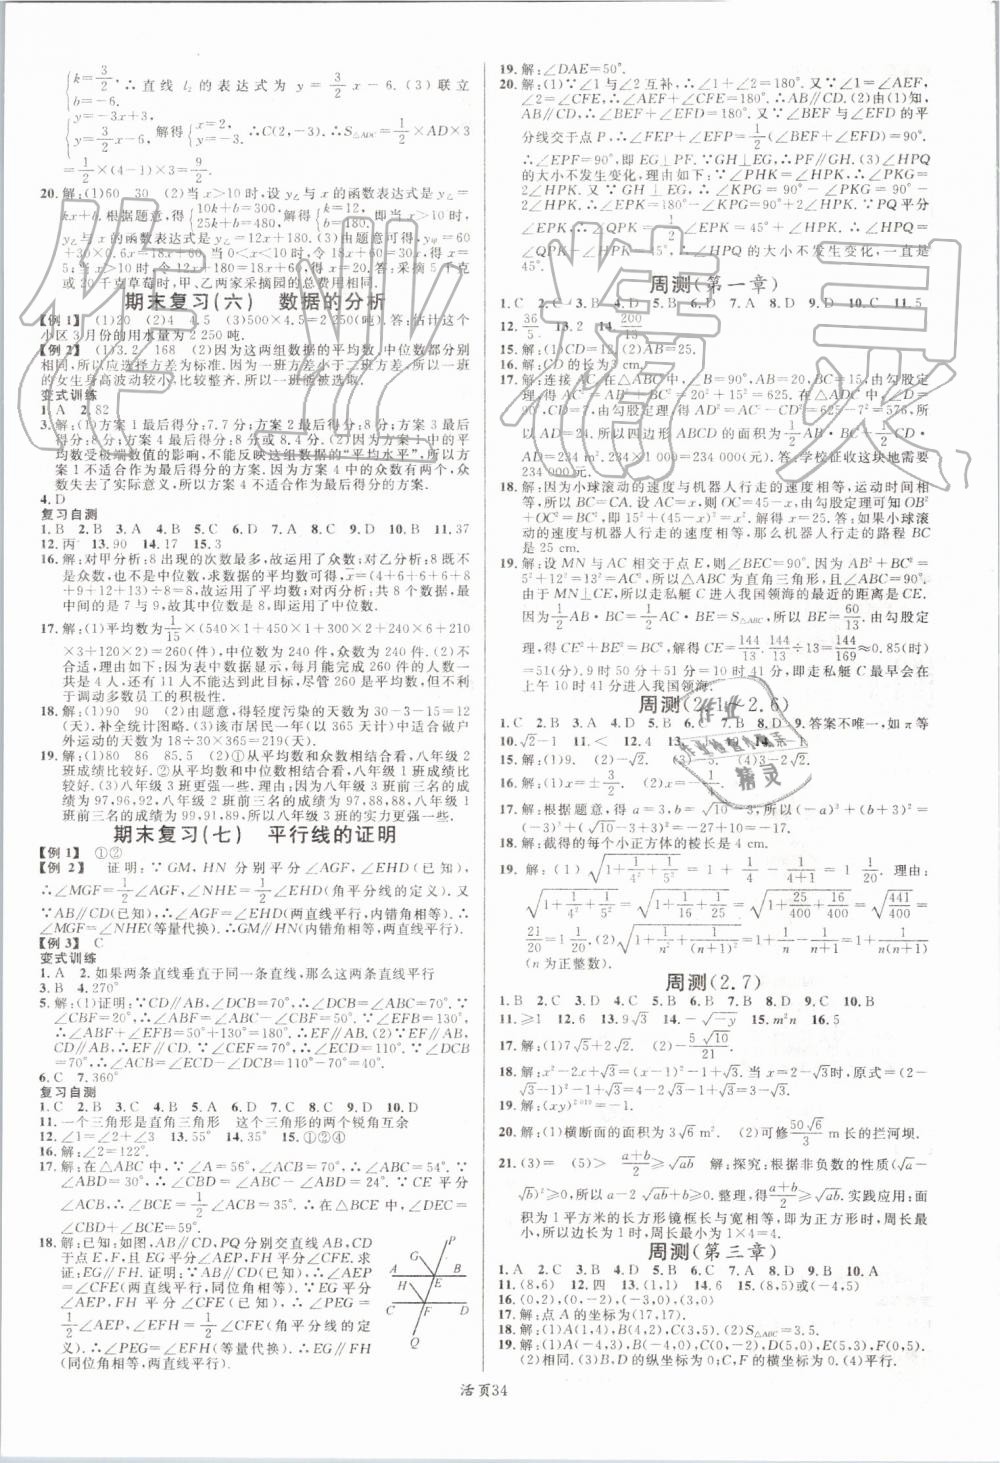 {k=3/2, b=-6. ∴直线 l₂ 的表达式为 y=3/2x-6. (3)联立
{y=-3x+3, y=3/2x-6. 解得{x=2, y=-3. ∴C(2,-3). ∴S△ADC=1/2×AD×3
=1/2×(4-1)×3=9/2.
20. 解:(1)60 30 (2)当x>10时,设y乙与x的函数表达式是y乙=
kx+b.根据题意,得{10k+b=300, 25k+b=480. 解得{k=12, b=180. 即当x>10时,
期末复习(六) 数据的分析
【例1】 (1)20 (2)4 4.5 (3)500×4.5=2 250(吨).答:估计这个
小区3月份的用水量为2 250吨.
【例2】 (1)3.2 168 (2)因为这两组数据的平均数、中位数都分别
相同,所以应选择方差为标准.因为一班方差小于二班方差,所以一班
的女生身高波动较小,比较整齐.所以一班能被选取.
变式训练
1. A 2. 82
3. 解:(1)方案1最后得分:7.7分;方案2最后得分:8分;方案3最后
得分:8分;方案4最后得分:8分或8.4分. (2)因为方案1中的平
均数受极端数值的影响,不能反映这组数据的“平均水平”,所以方案
1不适合作最后得分的方案.因为方案4中的众数有两个,众
数失去了实际意义,所以方案4不适合作最后得分的方案.
4. D
复习自测
1. B 2. B 3. A 4. B 5. C 6. B 7. C 8. D 9. D 10. B 11. 37
12. 丙 13. 90 14. 17 15. 3
17. 解:(1)平均数为1/15×(540×1+450×1+300×2+240×6+210
×3+120×2)=260(件),中位数为240件,众数为240件. (2)不
合适,理由如下:因为表中数据显示,每月能完成260件的人数一
共是4人,还有11人不能达到此目标,尽管260是平均数,但不利
于调动多数员工的积极性.
18. 解:(1)90 90 (2)由题意,得轻度污染的天数为30-3-15=12
(天).补全统计图略. (3)该市居民一年(以365天计)中适合做户
外运动的天数为18÷30×365=219(天).
19. 解:(1)80 86 85.5 (2)①从平均数和众数相结合看,八年级2
班成绩比较好.②从平均数和中位数相结合看,八年级1班成绩
比较好. (3)八年级3班更强一些.
期末复习(七) 平行线的证明
【例1】 ①②
【例2】 证明:∵GM,HN分别平分∠AGF,∠EHD(已知),
∴∠MGF=1/2∠AGF,∠NHE=1/2∠EHD(角平分线的定义).又
∵AB∥CD(已知),∴∠AGF=∠EHD(两直线平行,内错角相等).
∴∠MGF=∠NHE(等量代换).∴GM∥HN(内错角相等,两直线平行).
【例3】 C
变式训练
1. A 2. 如果两条直线垂直于同一条直线,那么这两条直线平行
3. B 4. 270°
5. 解:(1)证明:∵CD∥AB,∠DCB=70°,∴∠ABC=70°. ∵
∠CBF=20°,∴∠ABF=∠ABC-∠CBF=50°. ∵∠EFB=130°,
∴∠ABF+∠EFB=50°+130°=180°. ∴EF∥AB. (2)∵EF∥AB,
CD∥AB,∴EF∥CD. ∵∠CEF=70°,∴∠ECD=110°. ∵∠DCB=
70°,∴∠ACB=∠ECD-∠DCB=40°.
6. C 7. 360°
复习自测
1. C 2. B 3. C 4. A 5. A 6. D 7. D 8. C 9. C 10. D
11. 一个三角形是直角三角形 这个三角形的两个锐角互余
12. ∠1=∠2+∠3 13. 55° 14. 35° 15. ①②④
16. 解:∠2=122°.
17. 解:在△ABC中,∵∠A=56°,∠ACB=70°,∴∠ABC=54°. ∵
∠ABD=30°,∴∠CBD=∠ABC-∠ABD=24°. ∵CE平分
∠ACB,∴∠BCE=1/2∠ACB=35°. ∴在△BCE中,∠DEC
=∠CBD+∠BCE=59°.
18. 解:已知:如图,AB∥CD,PQ分别交直线AB,CD
于点E,F,EG平分∠AEP,FH平分∠CFE.求
证:EG∥FH. 证明:∵AB∥CD(已知),∴∠AEP
=∠CFE(两直线平行,同位角相等). ∵EG平分
∠AEP,FH平分∠CFE(已知),∴∠PEG=
1/2∠AEP,∠EFH=1/2∠CFE. ∴∠PEG=
∠EFH(等量代换). ∴EG∥FH
(同位角相等,两直线平行).
P G A E B H C F D Q
19. 解:∠DAE=50°.
20. 解:(1)∵∠1与∠2互补,∴∠1+∠2=180°. 又∵∠1=∠AEF,
∠2=∠CFE,∴∠AEF+∠CFE=180°. ∴AB∥CD. (2)由(1)知,
AB∥CD,∴∠BEF+∠EFD=180°. 又∵∠BEF与∠EFD的平
分线交于点P,∴∠FEP+∠EFP=1/2(∠BEF+∠EFD)=90°.
∴∠EPF=90°,即EG⊥PF. ∵GH⊥EG,∴PF∥GH. (3)∠HPQ
的大小不发生变化,理由如下:∵∠PHK=∠HPK,∴∠PKG=
2∠HPK. 又∵GH⊥EG,∴∠KPG=90°-∠PKG=90°-
2∠HPK. ∴∠EPK=180°-∠KPG=90°+2∠HPK. ∵PQ平分
∠EPK,∴∠QPK=1/2∠EPK=45°+∠HPK. ∴∠HPQ=
∠QPK-∠HPK=45°. ∴∠HPQ的大小不发生变化,一直是
45°.
周测(第一章)
1. C 2. C 3. C 4. D 5. B 6. D 7. A 8. B 9. C 10. C 11. 5
12. 36/5 13. 2 14. 200/13
15. 解:(1)CD=12. (2)AB=25.
16. 解:CD的长为3 cm.
17. 解:连接AC.在△ABC中,∠B=90°,AB=20,BC=15,由勾股定
理,得AC²=AB²+BC²=20²+15²=625.在△ADC中,∠D=
90°,CD=7,由勾股定理,得AD²=AC²-CD²=625-7²=576,所
以AD=24.所以四边形ABCD的面积为1/2AB·BC+1/2CD
·AD=234(m²). 234×1 000=234 000(元).答:学校征收这块地需要
234 000元.
18. 解:因为小球滚动的速度与机器人行走的速度相等,运动时间相等,
所以BC=CA.设AC=x,则OC=45-x,由勾股定理可知OB²
+OC²=BC²,即15²+(45-x)²=x²,解得x=25.答:如果小球滚
动的速度与机器人行走的速度相等,那么机器人行走的路程BC
是25 cm.
19. 解:设MN与AC相交于点E,则∠BEC=90°.因为AB²+BC²=
5²+12²=13²=AC²,所以△ABC为直角三角形,且∠ABC=90°.
由于MN⊥CE,所以走私艇C进入我国领海的最近的距离是CE.
因为1/2AB·BC=1/2AC·BE=S△ABC,所以BE=60/13.由勾股定
理,得CE²+BE²=BC²,解得CE=144/13. 144/13÷13=144/169≈0.85(时)
=51(分). 9时50分+51分=10时41分.答:即走私艇C最早在
上午10时41分进入我国领海.
周测(2.1~2.6)
1. C 2. B 3. B 4. D 5. B 6. C 7. B 8. D 9. 答案不唯一,如π等
10. √2-1 11. < 12. 4
16. 解:(1)x=±3/2. (2)x=-1/4.
17. 解:根据题意,得a=3,b=√10-3,所以a²+b-√10=3²+
18. 解:截得的每个小正方体的棱长是4 cm.
19. 解:(1)√(1+1/4²+1/5²)=1+1/4-1/5=1 1/20. 理由:
√(1+1/4²+1/5²)=√(1+1/16+1/25)=√(1+25/400+16/400)=√(441/400)=
21/20=1 1/20. (2)√(1+1/n²+1/(n+1)²)=1+1/n-1/(n+1)=1+1/n(n+1)
(n为正整数).
周测(2.7)
1. B 2. C 3. C 4. D 5. D 6. B 7. A 8. D 9. C 10. B
11. ≥1 12. 6 13. 9√3 14. -√-y 15. m²n 16. 5
17. 解:(1)7√5+2. (2)-5√10/21.
19. 解:(xy)²⁰¹⁹=-1.
20. 解:(1)横断面的面积为3√6 m². (2)可修50√6/3 m长的拦河坝.
21. (3)= (5)> (a+b)/2≥√ab 解:探究:根据非负数的性质(√a-
√b)²≥0,所以a-2√ab+b≥0.整理,得(a+b)/2≥√ab.实践应用:面
积为1平方米的长方形镜框长与宽相等,即为正方形时,周长最
小,所以周长最小为1×4=4.
周测(第三章)
1. A 2. D 3. C 4. D 5. C 6. B 7. D 8. B 9. B 10. A
11. (8,6) 12. 四 13. (1,1) 14. 6 15. (8,5)或(-4,5)
16. (0,2),(0,-2),(-3,0),(3,0)
17. 解:点A的坐标为(17,17).
18. 解:(1)A(1,4),B(4,2),C(3,5). (2)S△ABC=3.5.
19. 解:(1)A(-4,3),B(-4,0),C(0,-2),D(5,0),E(5,3),F(0,5).
(2)相同. (3)B,D的纵坐标为0;C,F的横坐标为0. (4)平行.
活页34